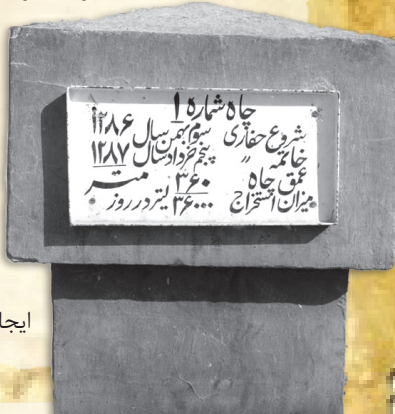 چاه شماره ۱
شروع حفاری سوم بهمن سال ۱۲۸۶
خاتمه " پنجم خرداد سال ۱۲۸۷
عمق چاه ۳۶۰ متر
میزان استخراج ۳۶۰۰۰ لیتر در روز
ایجا